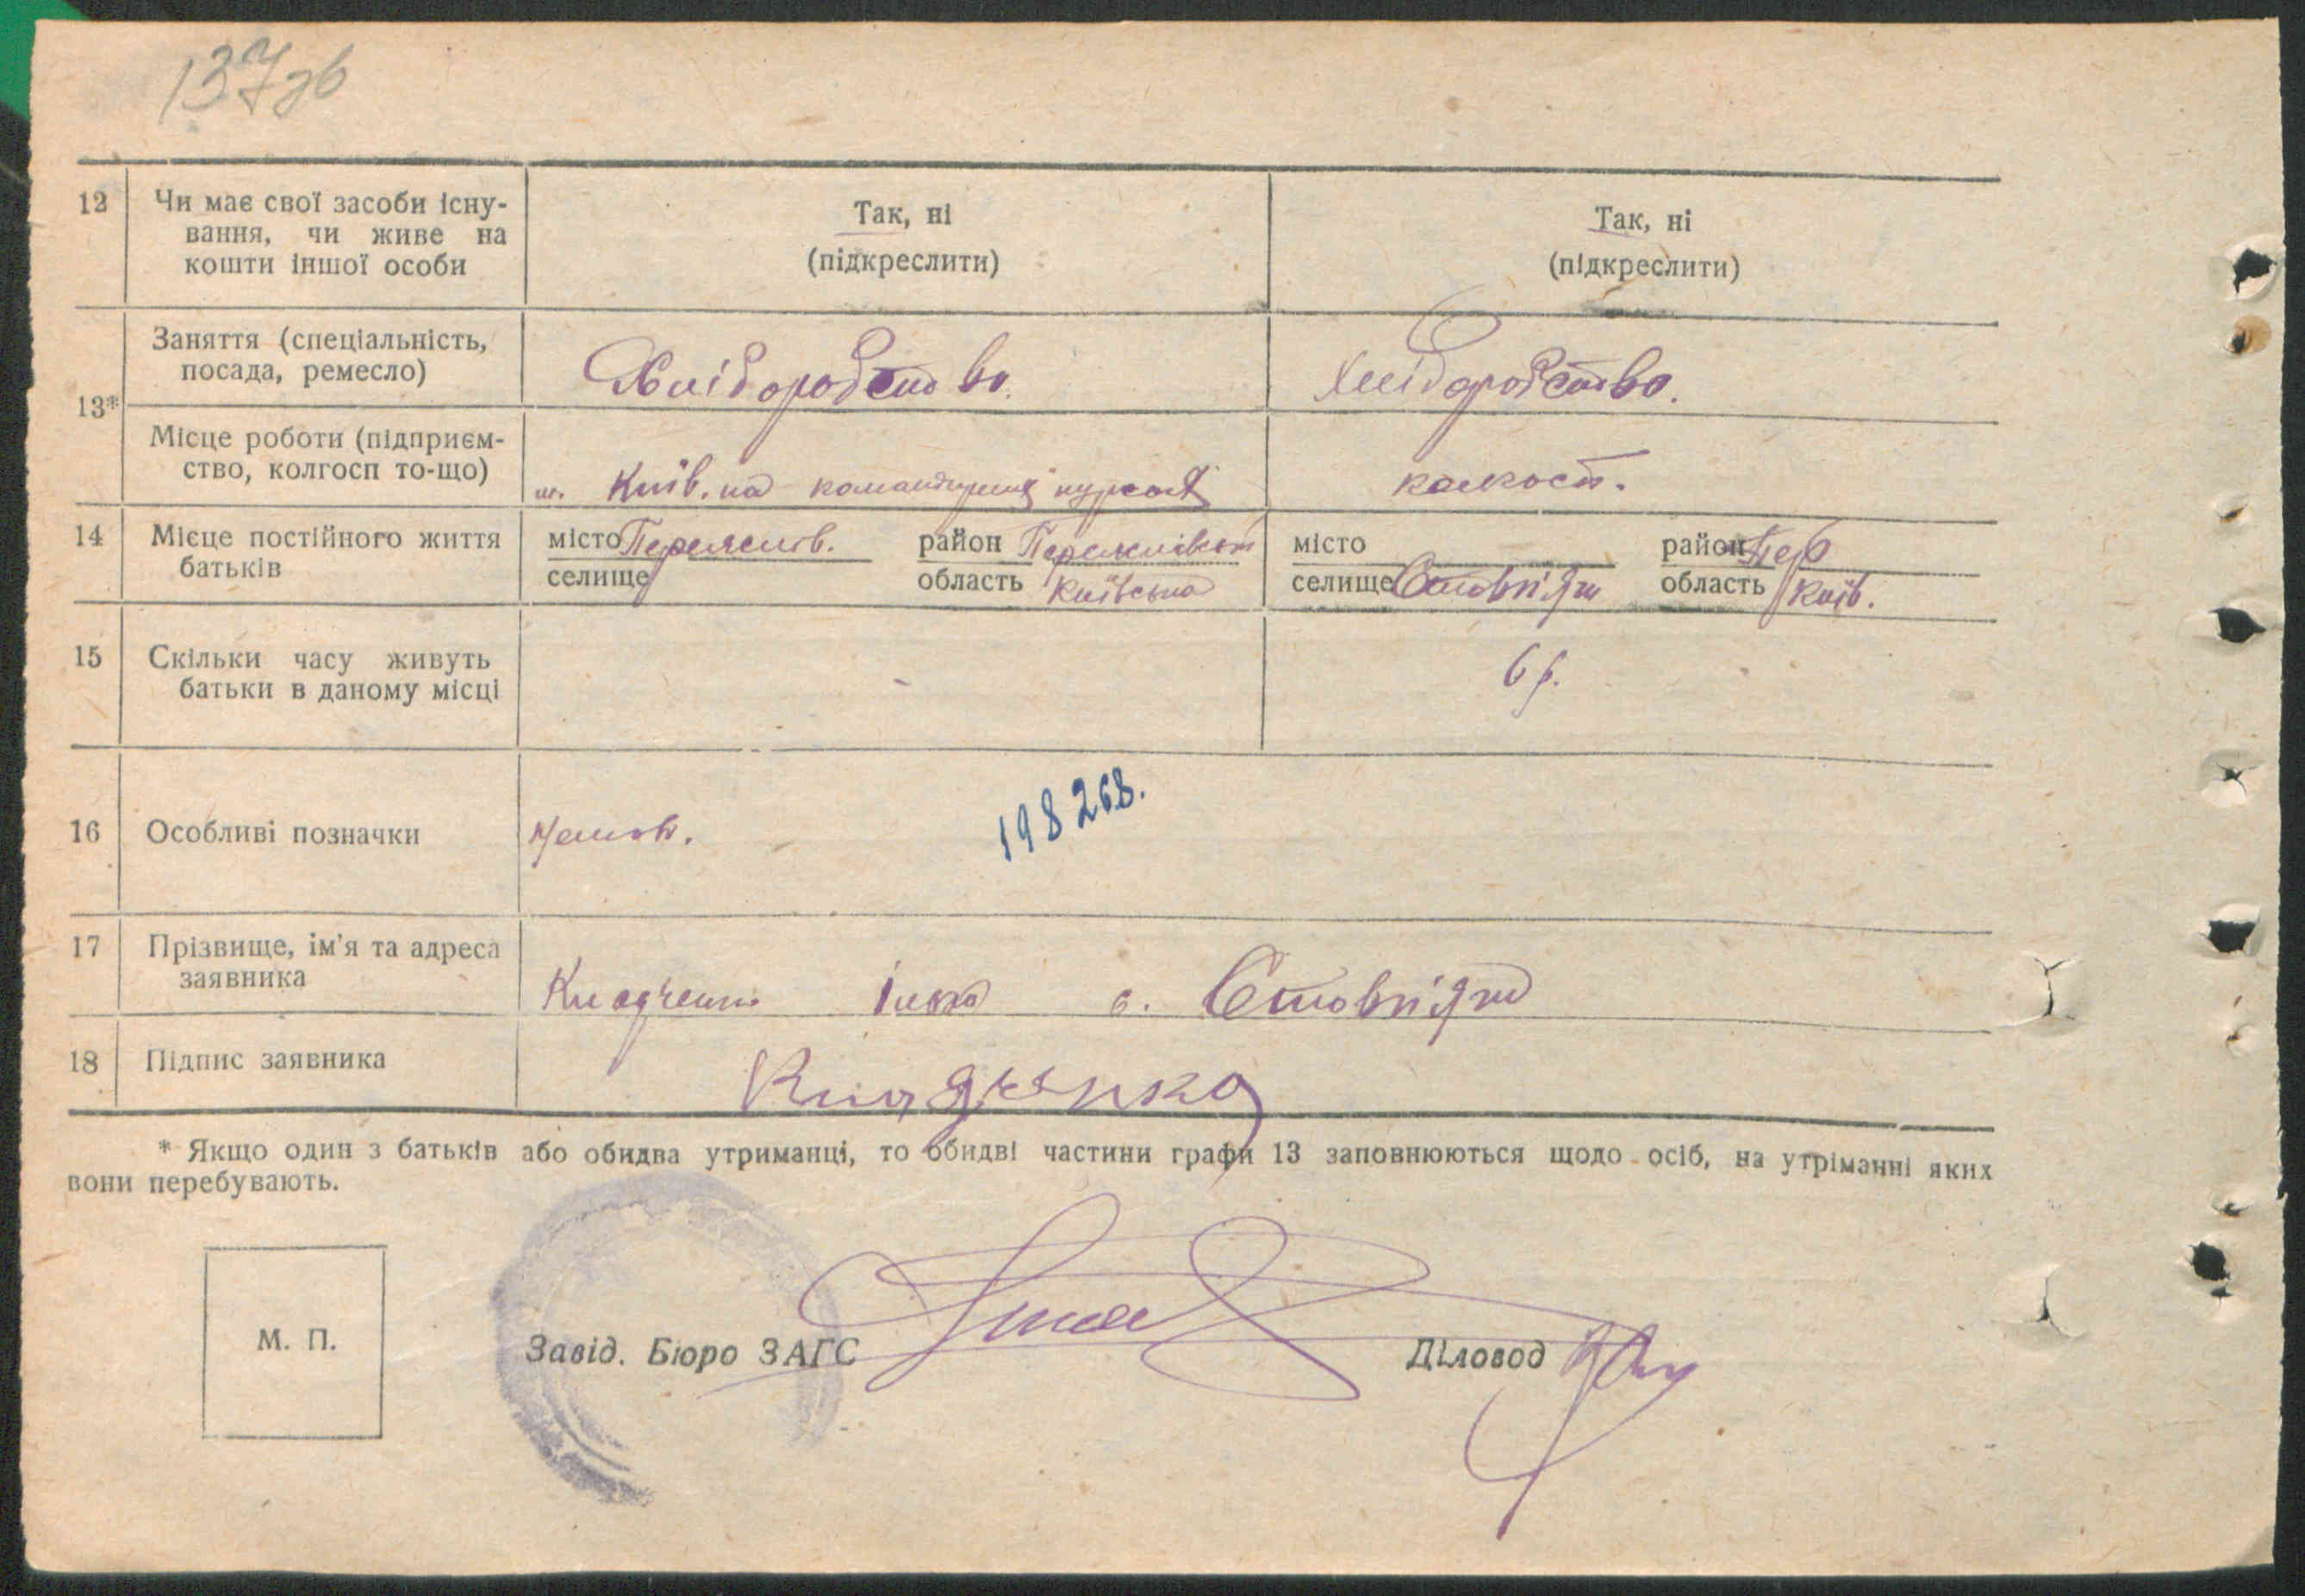 137 зв
12 Чи має свої засоби існу- Так, ні Так, ні
вання, чи живе на
кошти іншої особи (підкреслити) (підкреслити)
Заняття (спеціальність,
посада, ремесло) Хліборобство. Хліборобство.
13*
Місце роботи (підприєм-
ство, колгосп то-що) м. Київ. на командирських курсах колгосп.
14 Місце постійного життя місто Переяслів. район Переяслівськ місто район Пер
батьків селище область Київська селище Стовп'яги область Київ.
15 Скільки часу живуть 6 р.
батьки в даному місці
198268.
16 Особливі позначки
17 Прізвище, ім'я та адреса
заявника с. Стовп'яги
18 Підпис заявника
* Якщо один з батьків або обидва утриманці, то обидві частини графи 13 заповнюються щодо осіб, на утріманні яких
вони перебувають.
М. П.
Завід. Бюро ЗАГС Діловод